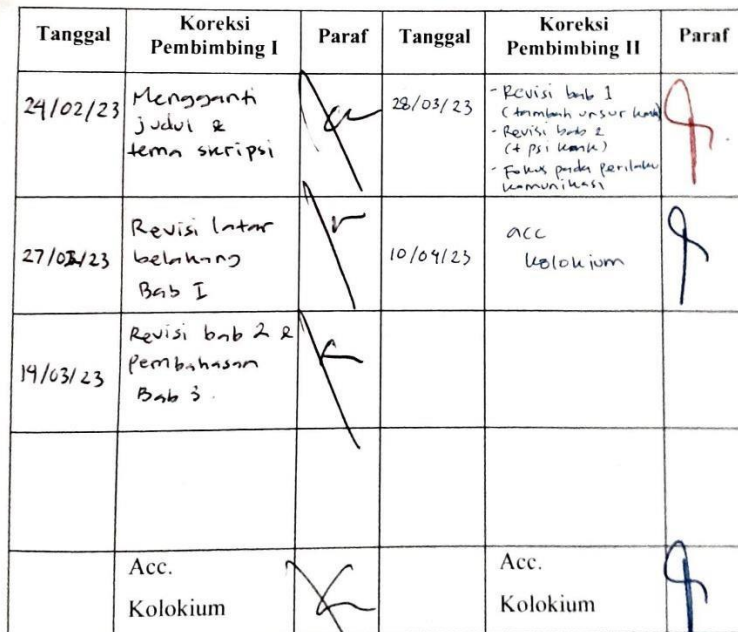 Tanggal
Koreksi
Pembimbing I
Paraf
Tanggal
Koreksi
Pembimbing II
Paraf
24/02/23
Mengganti
judul &
tema skripsi
28/03/23
- Revisi bab 1
(tambah unsur kank)
- Revisi bab 2
(+ psi kank)
- Fokus pada perilaku
komunikasi
27/02/23
Revisi latar
belakang
Bab I
10/04/23
acc
kolokium
14/03/23
Revisi bab 2 &
Pembahasan
Bab 3.
Acc.
Kolokium
Acc.
Kolokium